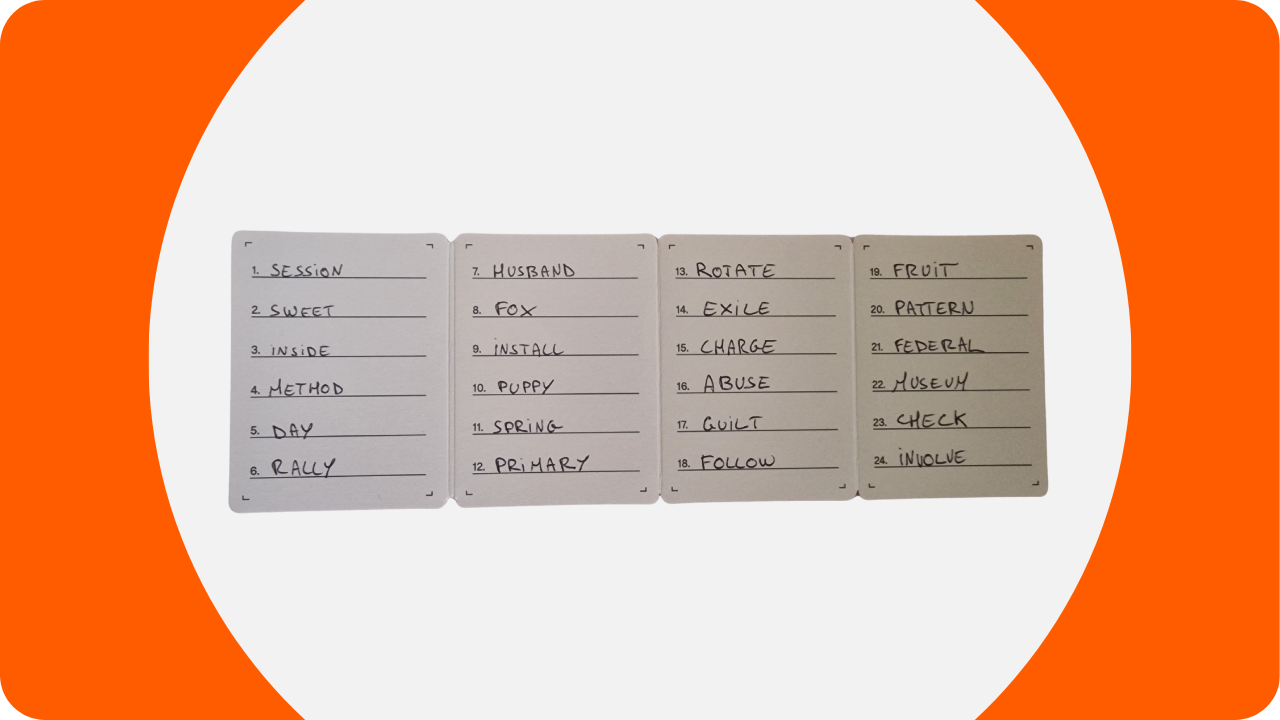 1. SESSION
2. SWEET
3. INSIDE
4. METHOD
5. DAY
6. RALLY
7. HUSBAND
8. FOX
9. INSTALL
10. PUPPY
11. SPRING
12. PRIMARY
13. ROTATE
14. EXILE
15. CHARGE
16. ABUSE
17. GUILT
18. FOLLOW
19. FRUIT
20. PATTERN
21. FEDERAL
22. MUSEUM
23. CHECK
24. INVOLVE